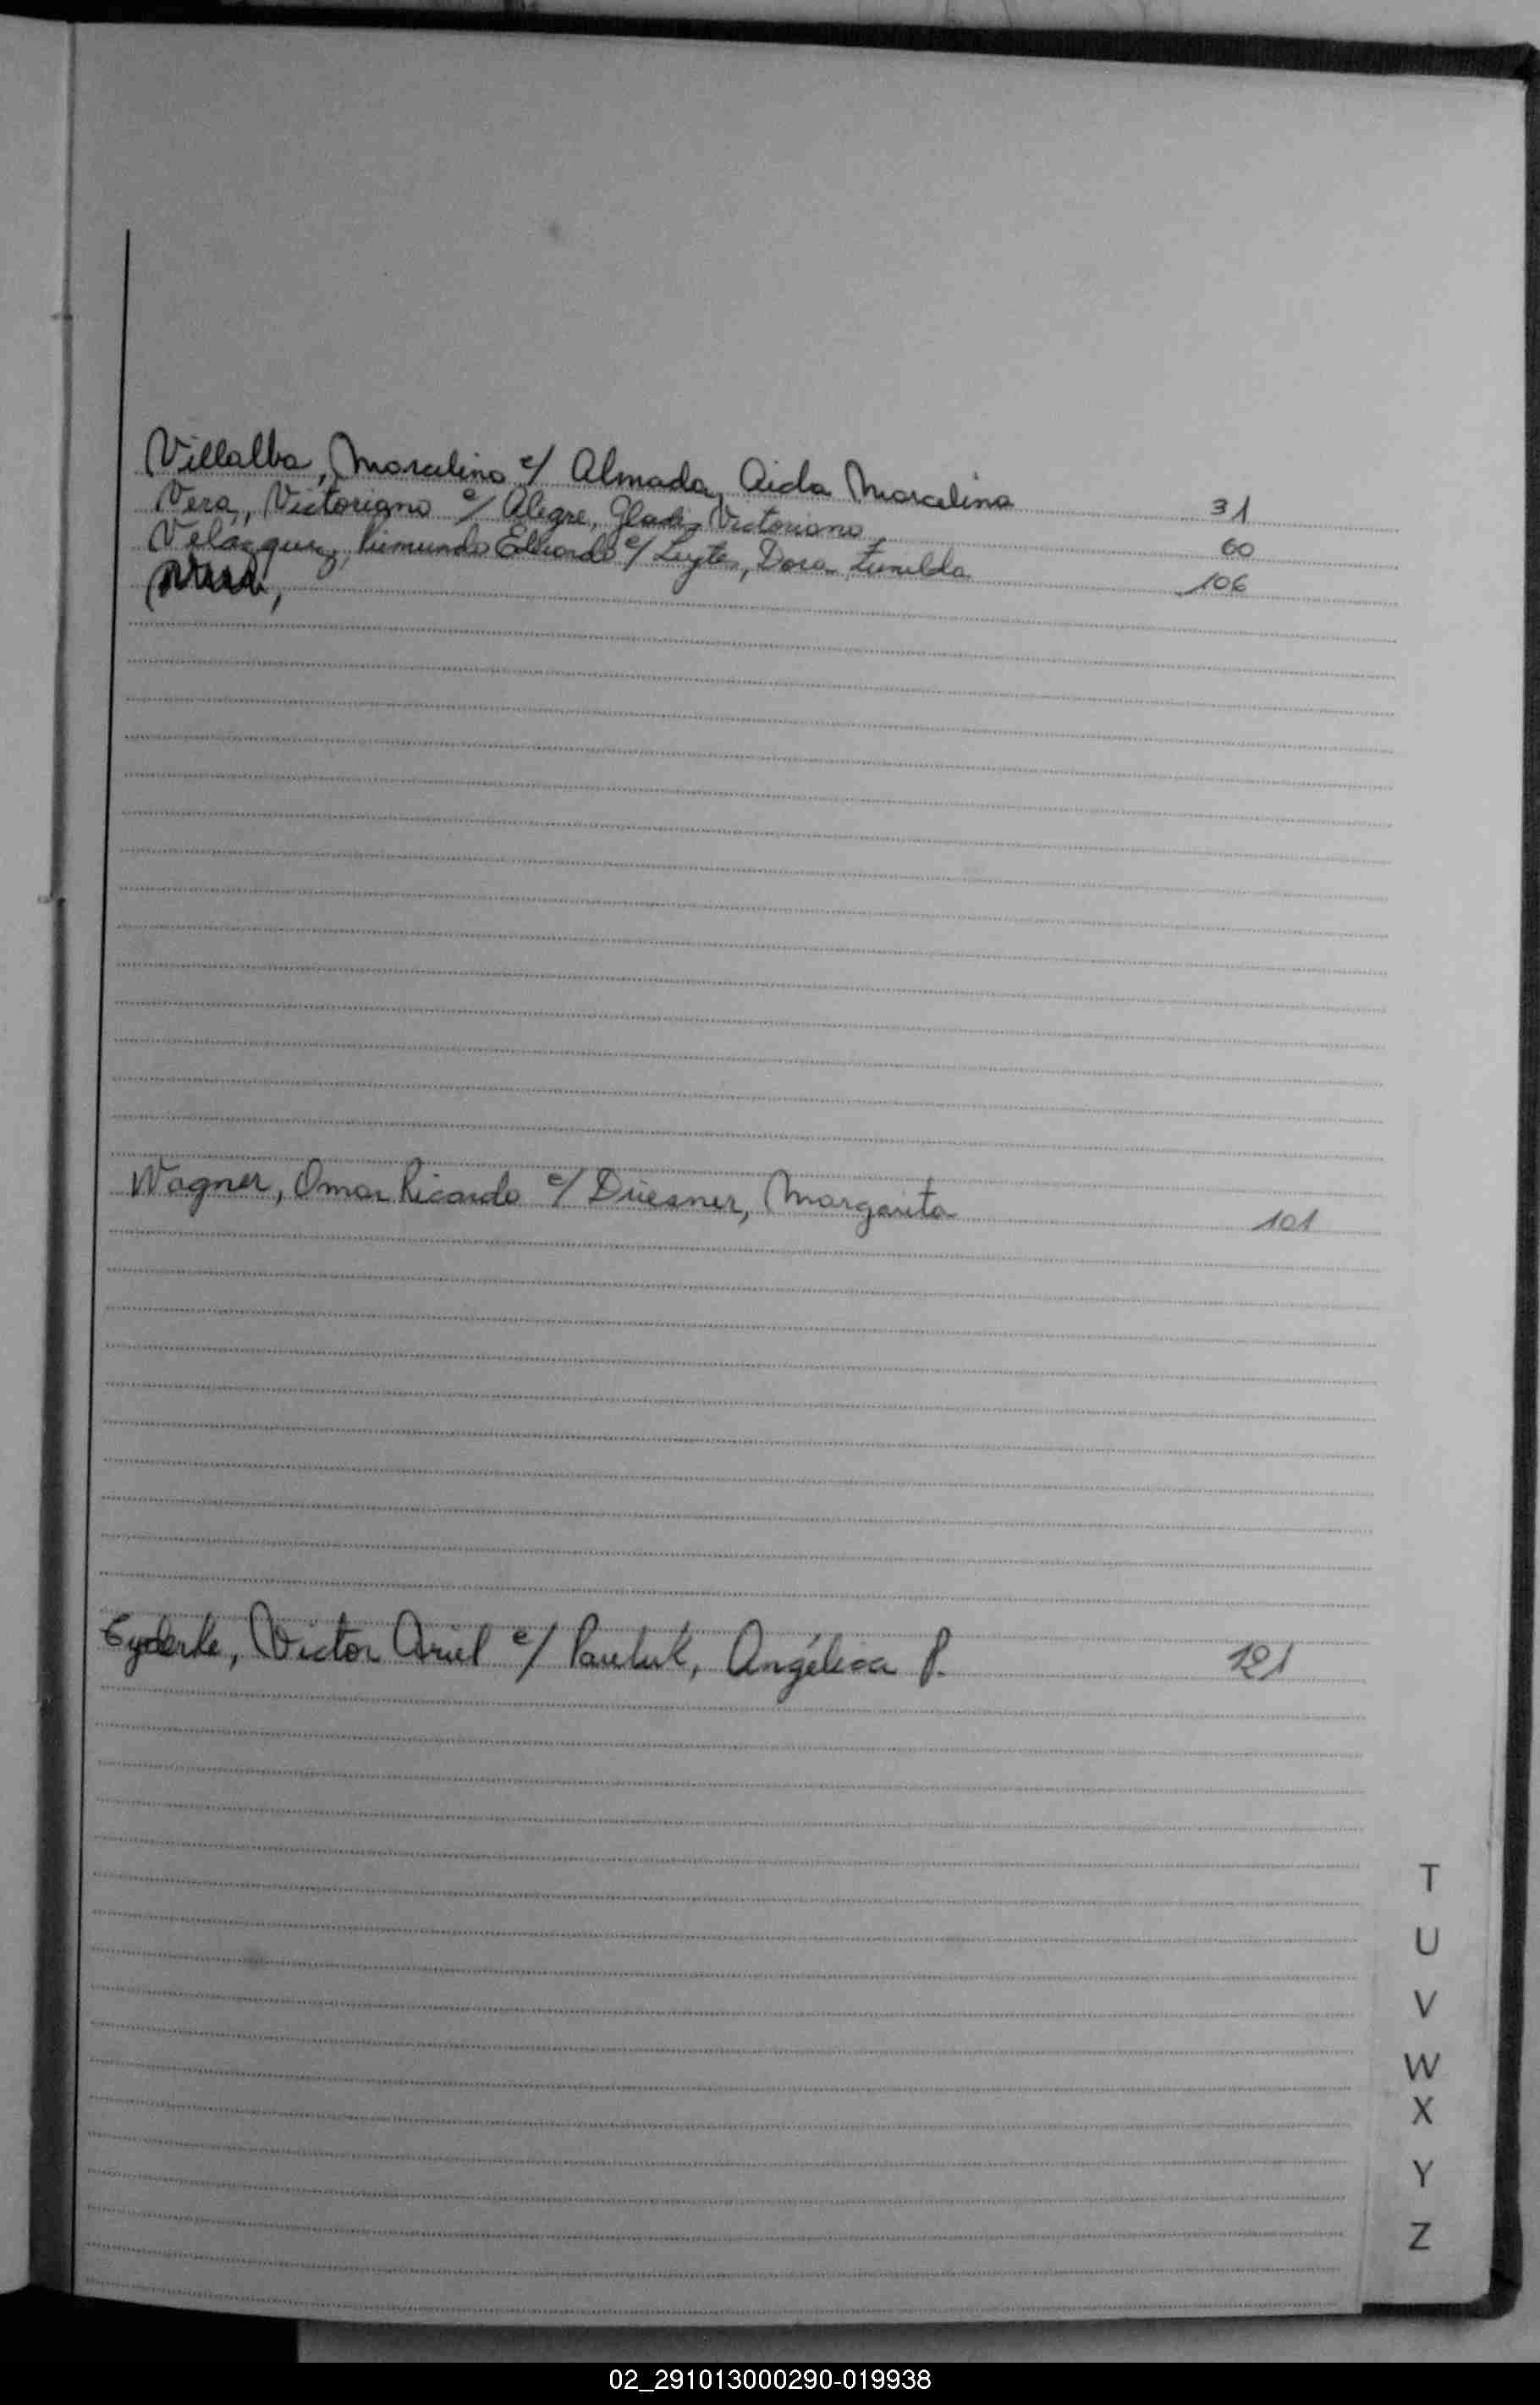 Villalba, Marcelino c/ Almada, Aida Marcelina 31
Vera, Victoriano c/ Alegre, Gladis Victoriana 60
Velazquez, Rimundo Edwardo c/ Dora 106
Wagner, Omar Ricardo c/ Driesner, Margarita 101
Victor Ariel c/ Pauluk, Angélica P. 121
T
U
V
W
X
Y
Z
02_291013000290-019938